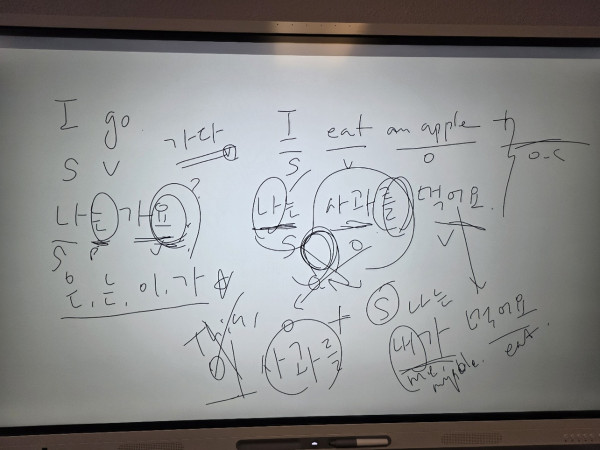 I go
S V
가다
나는 가요 ?
S V
은, 는, 이, 가
I eat an apple
S V O O.C
나는 사과를 먹어요.
S O V
This,
사과를
S 나는
내가 먹어요
me, eat.